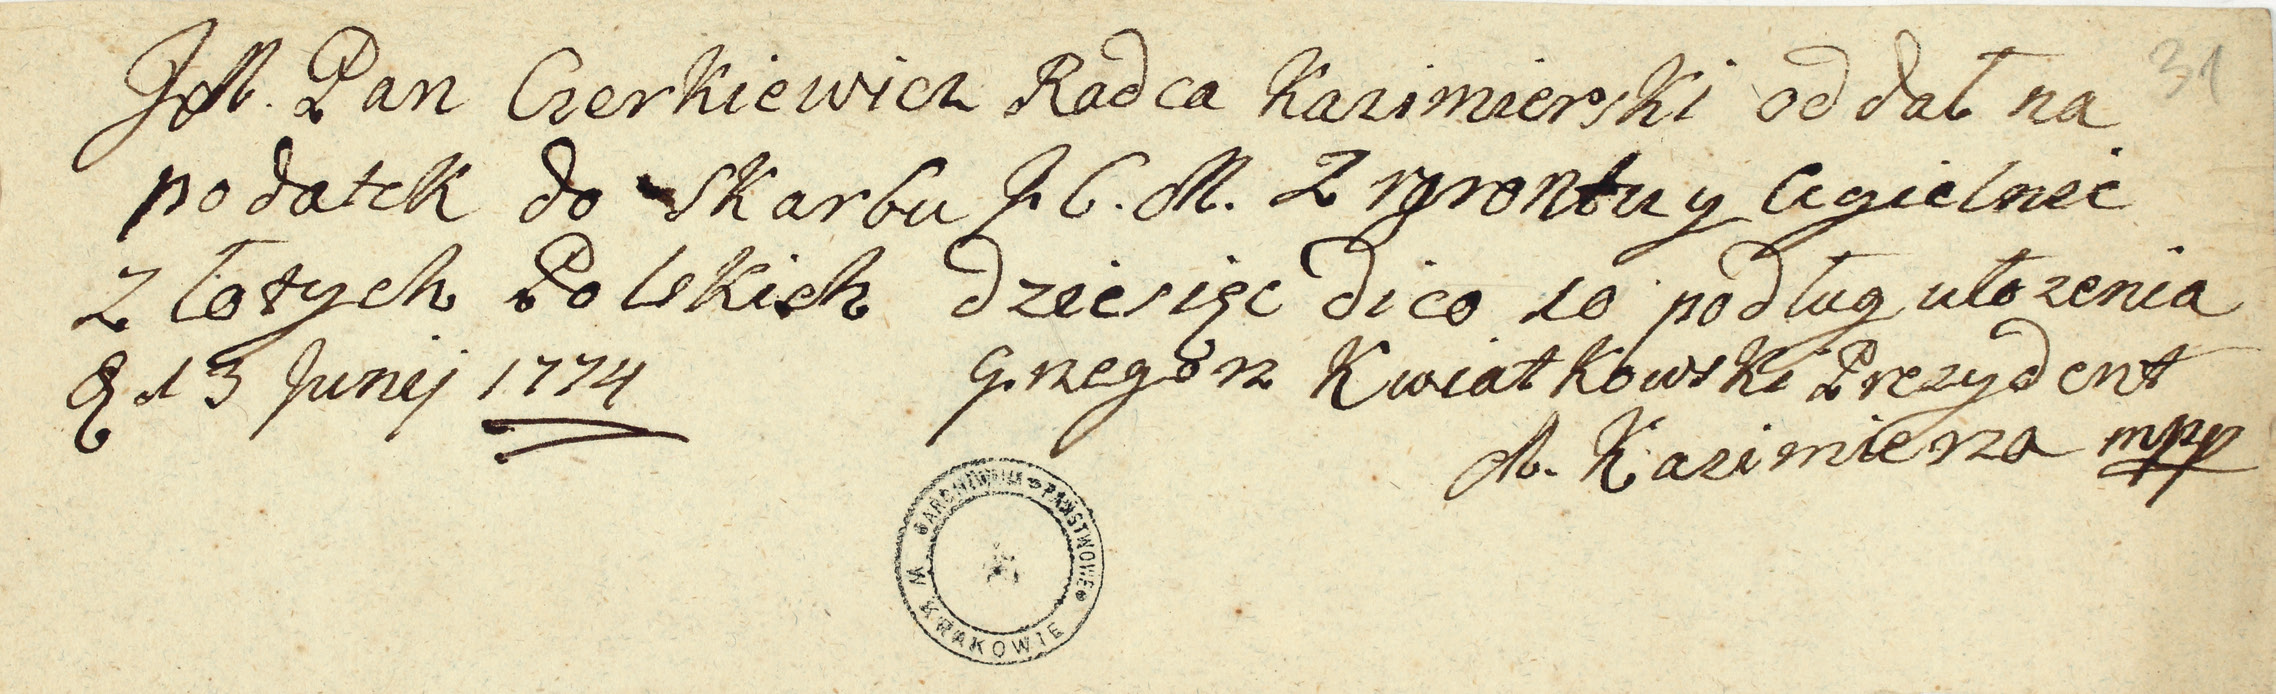 JM. Pan Czerkiewicz Radca Kazimierski oddał na
31
podatek do skarbu J. C. M. Z grontu y Cegielnie
Złotych Polskich dziesięc dico 10 podług ułozenia
d 13 Junij 1774 Grzegorz Kwiatkowski Prezydent
M. Kazimierza mpp
ARCHIWUM PAŃSTWOWE
W KRAKOWIE